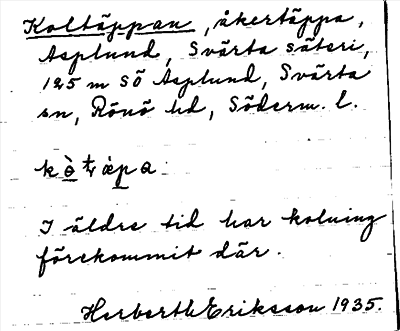 Koltäppan, åkertäppa,
Asplund, Svärta säteri,
125 m SÖ Asplund, Svärta
sn, Rönö hd, Söderm. l.
I äldre tid har kolning
förekommit där.
Herberth Eriksson 1935.